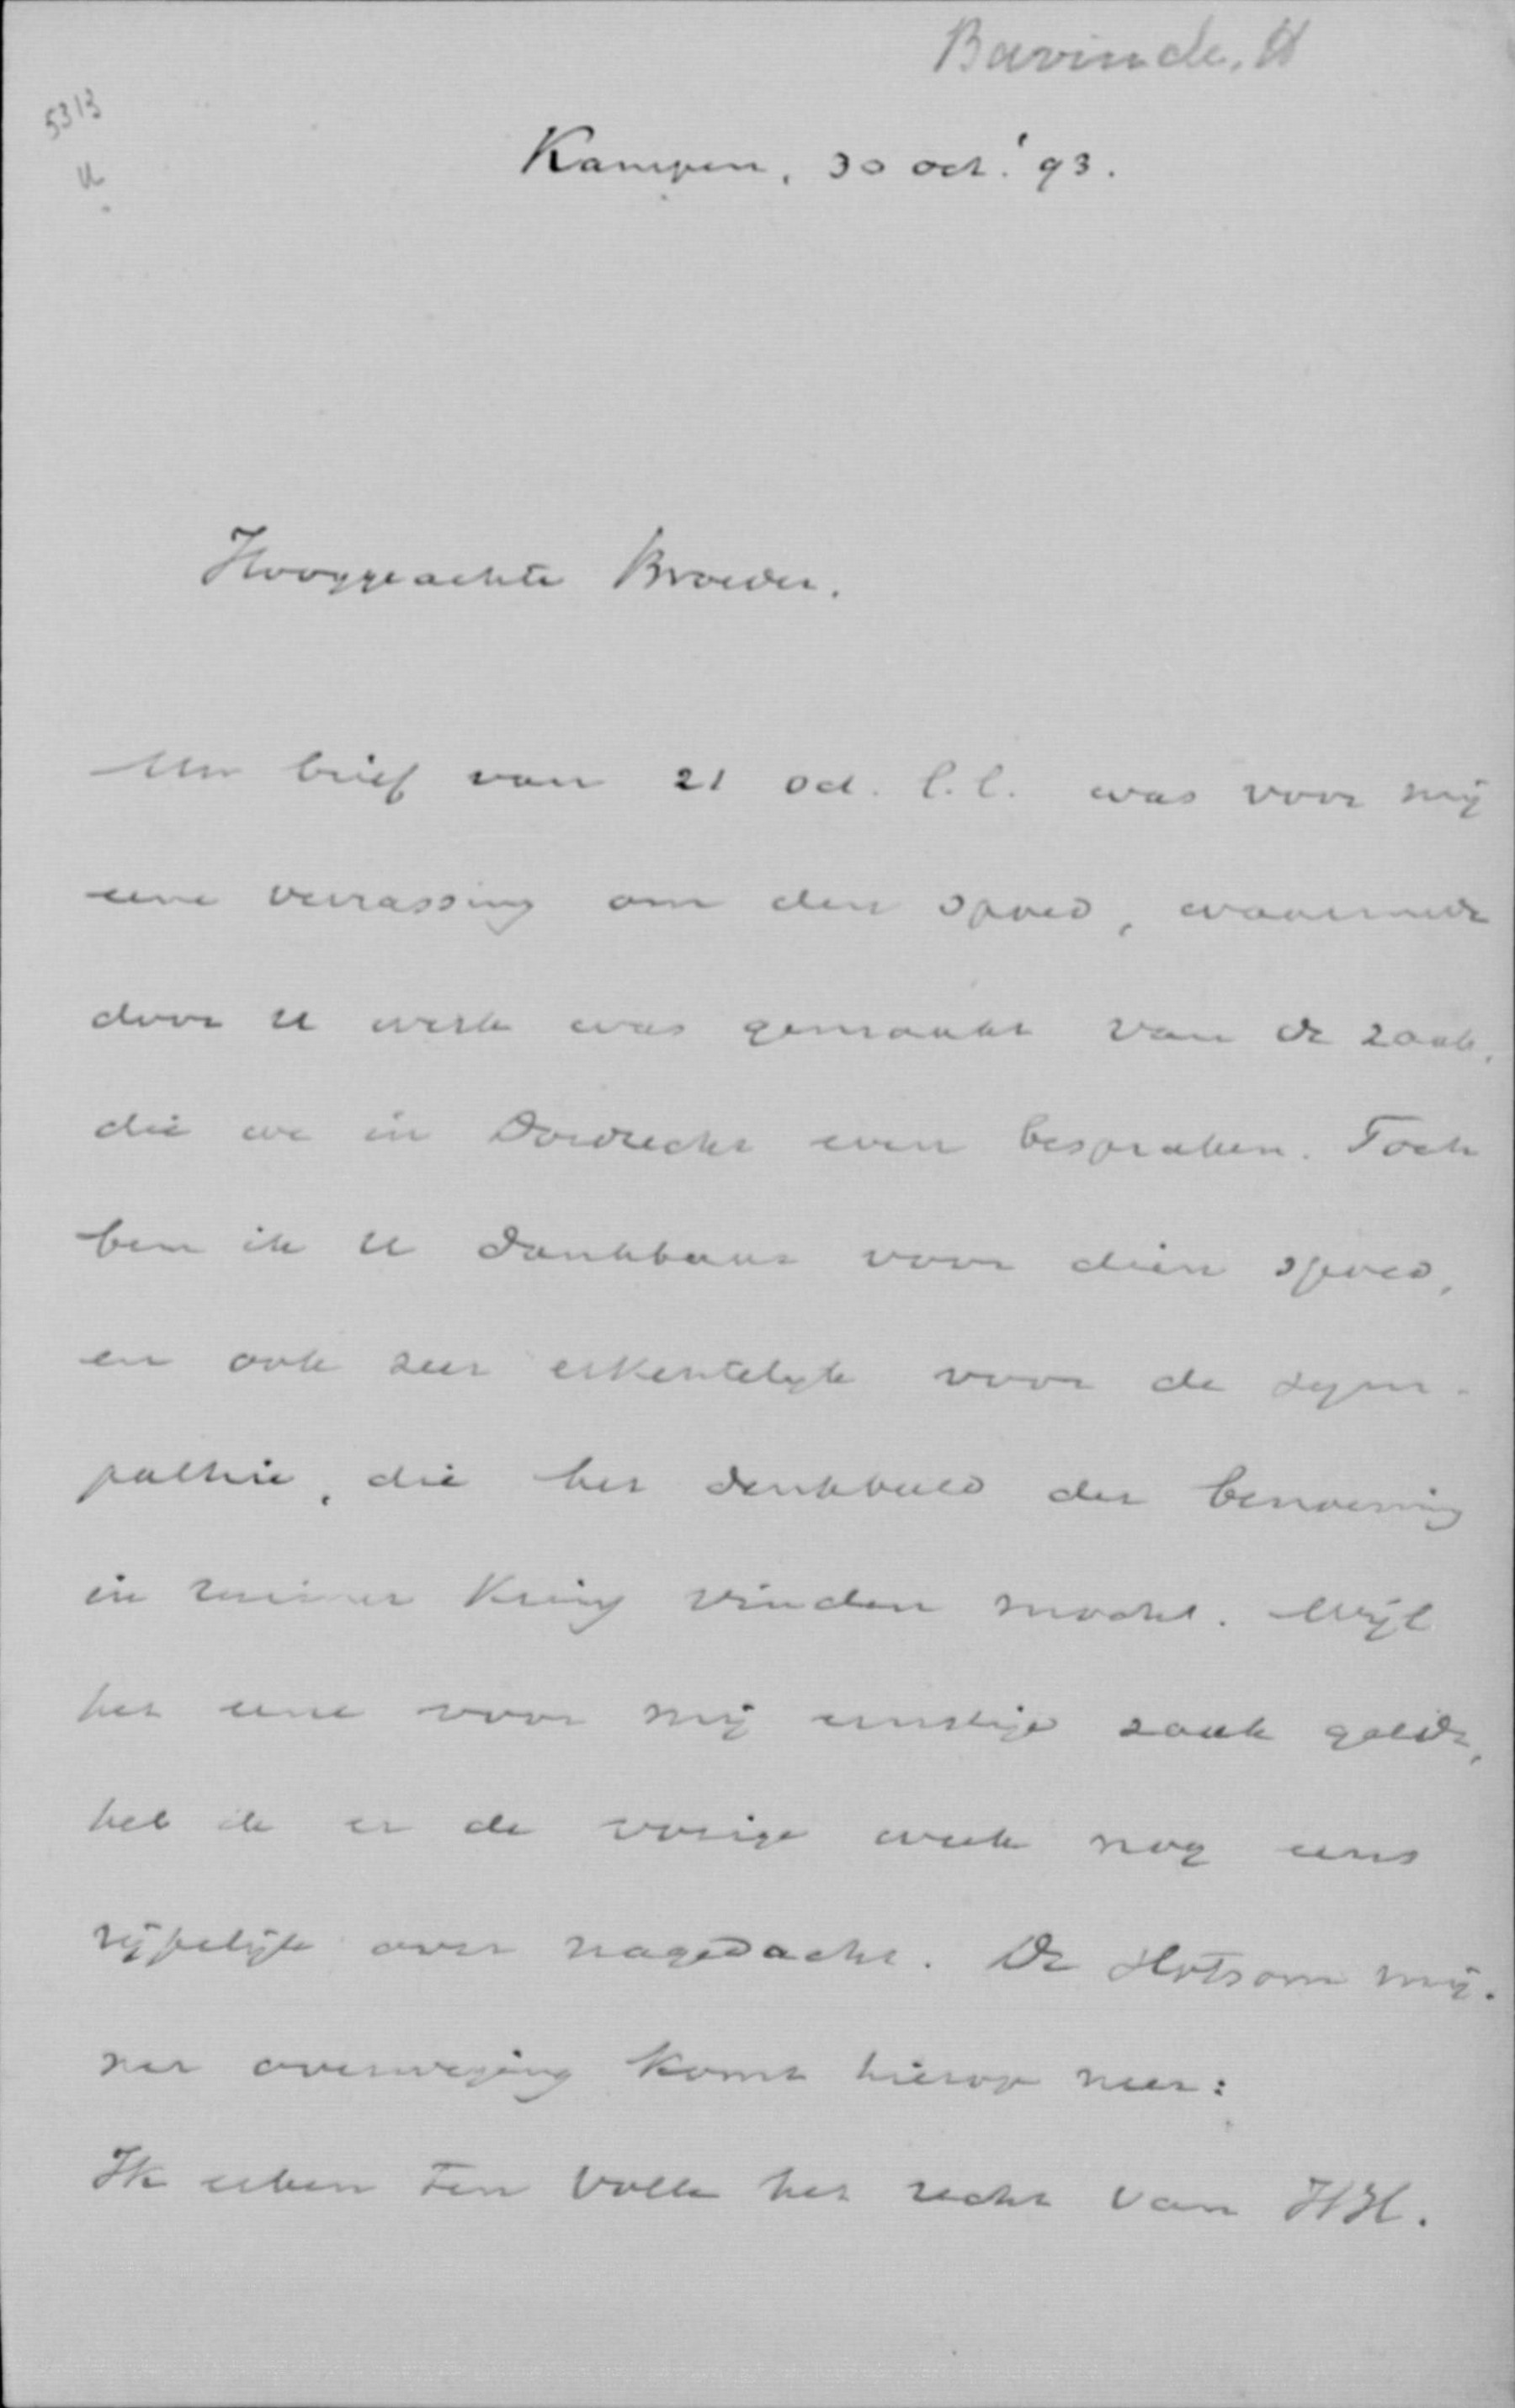 Bavinck, H
5313
U
Kampen, 30 oct. '93.
Hooggeachte Broeder.
Uw brief van 21 oct. l.l. was voor mij
eene verrassing om den spoed, waarmede
door U werk was gemaakt van de zaak,
die we in Dordrecht even bespraken. Toch
ben ik U dankbaar voor dien spoed,
en ook zeer erkentelijk voor de sym-
pathie, die het denkbeeld der benoeming
in ruimer kring vinden mocht. Wijl
het eene voor mij ernstige zaak geldt,
heb ik er de vorige week nog eens
rijpelijk over nagedacht. De slotsom mij-
ner overweging komt hierop neer:
Ik erken ten volle het recht van HH.